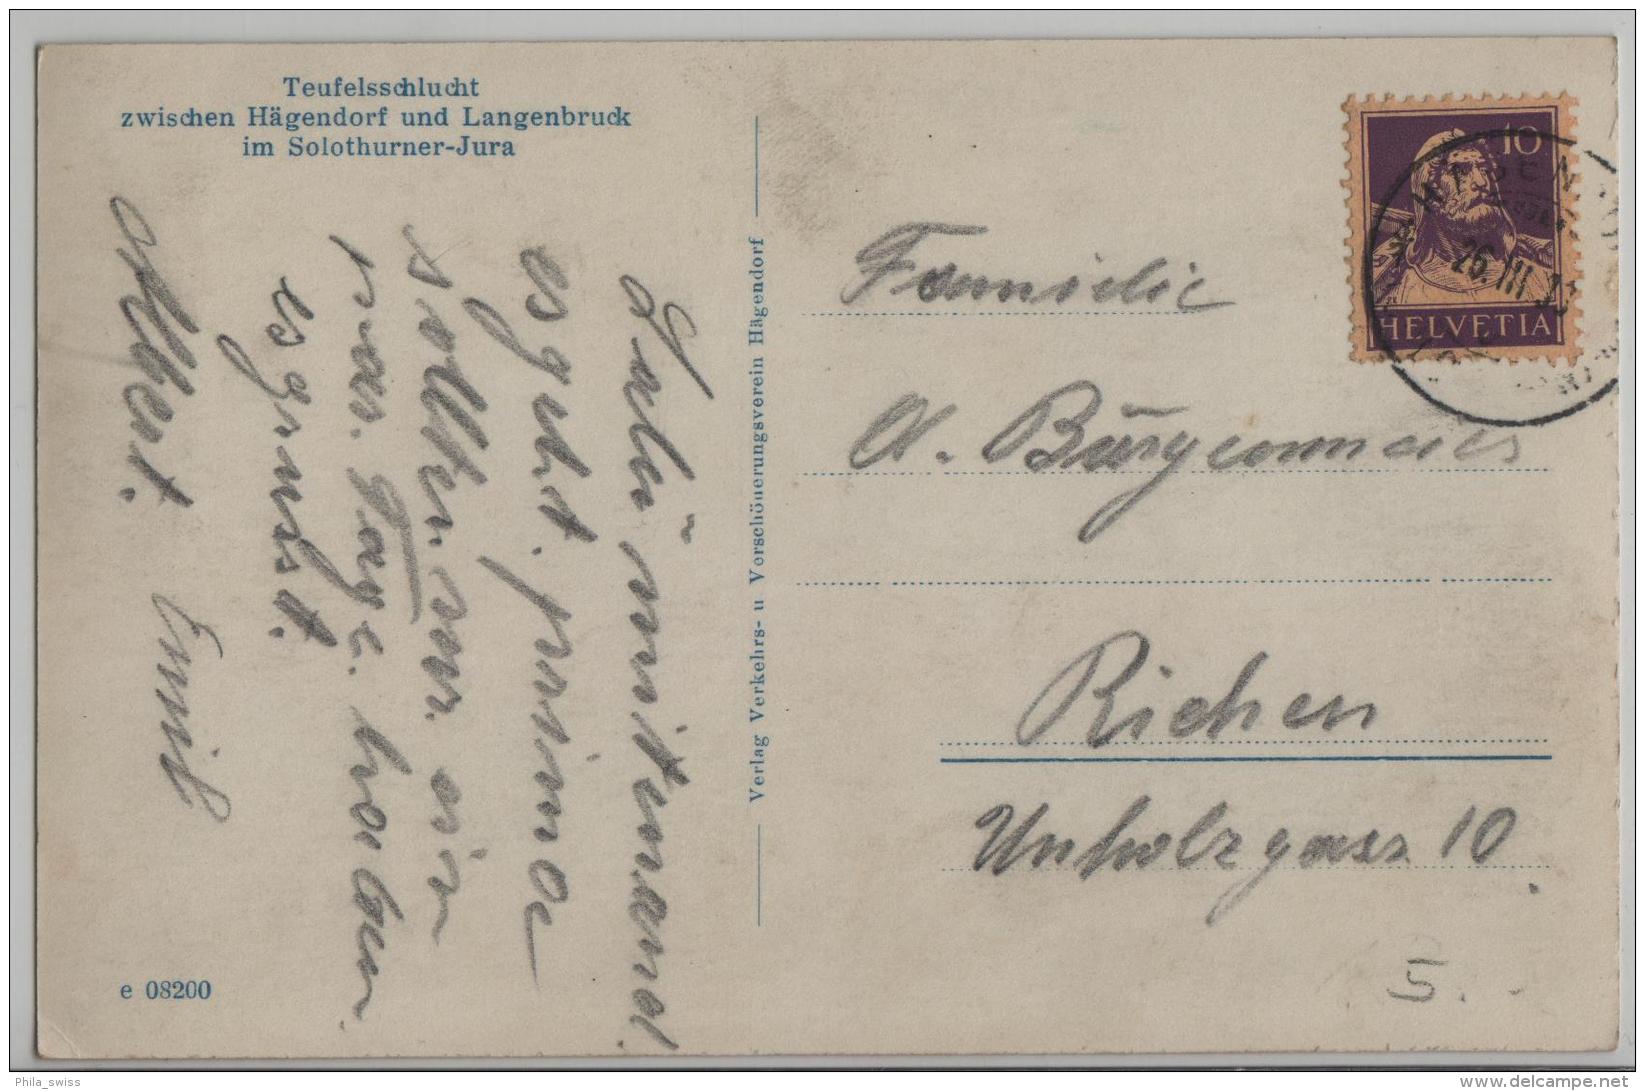 Teufelsschlucht
zwischen Hägendorf und Langenbruck
im Solothurner-Jura
Salü mitenand
es geht. prima
sollten nur ein
paar Tage. haben
es grüsst.
Albert. Emil
e 08200
Verlag Verkehrs- u Verschönerungsverein Hägendorf
10
26. III
HELVETIA
Familie
A. Burgenmeier
Riehen
Unholzgass 10
5.-
Phila_swiss
www.delcampe.net